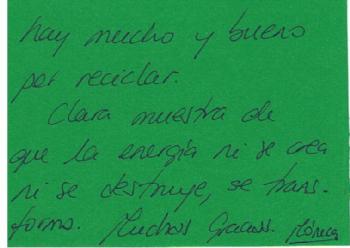 hay mucho y bueno
por reciclar.
Clara muestra de
que la energía ni se crea
ni se destruye, se trans-
forma. Muchas Gracias. Mónica